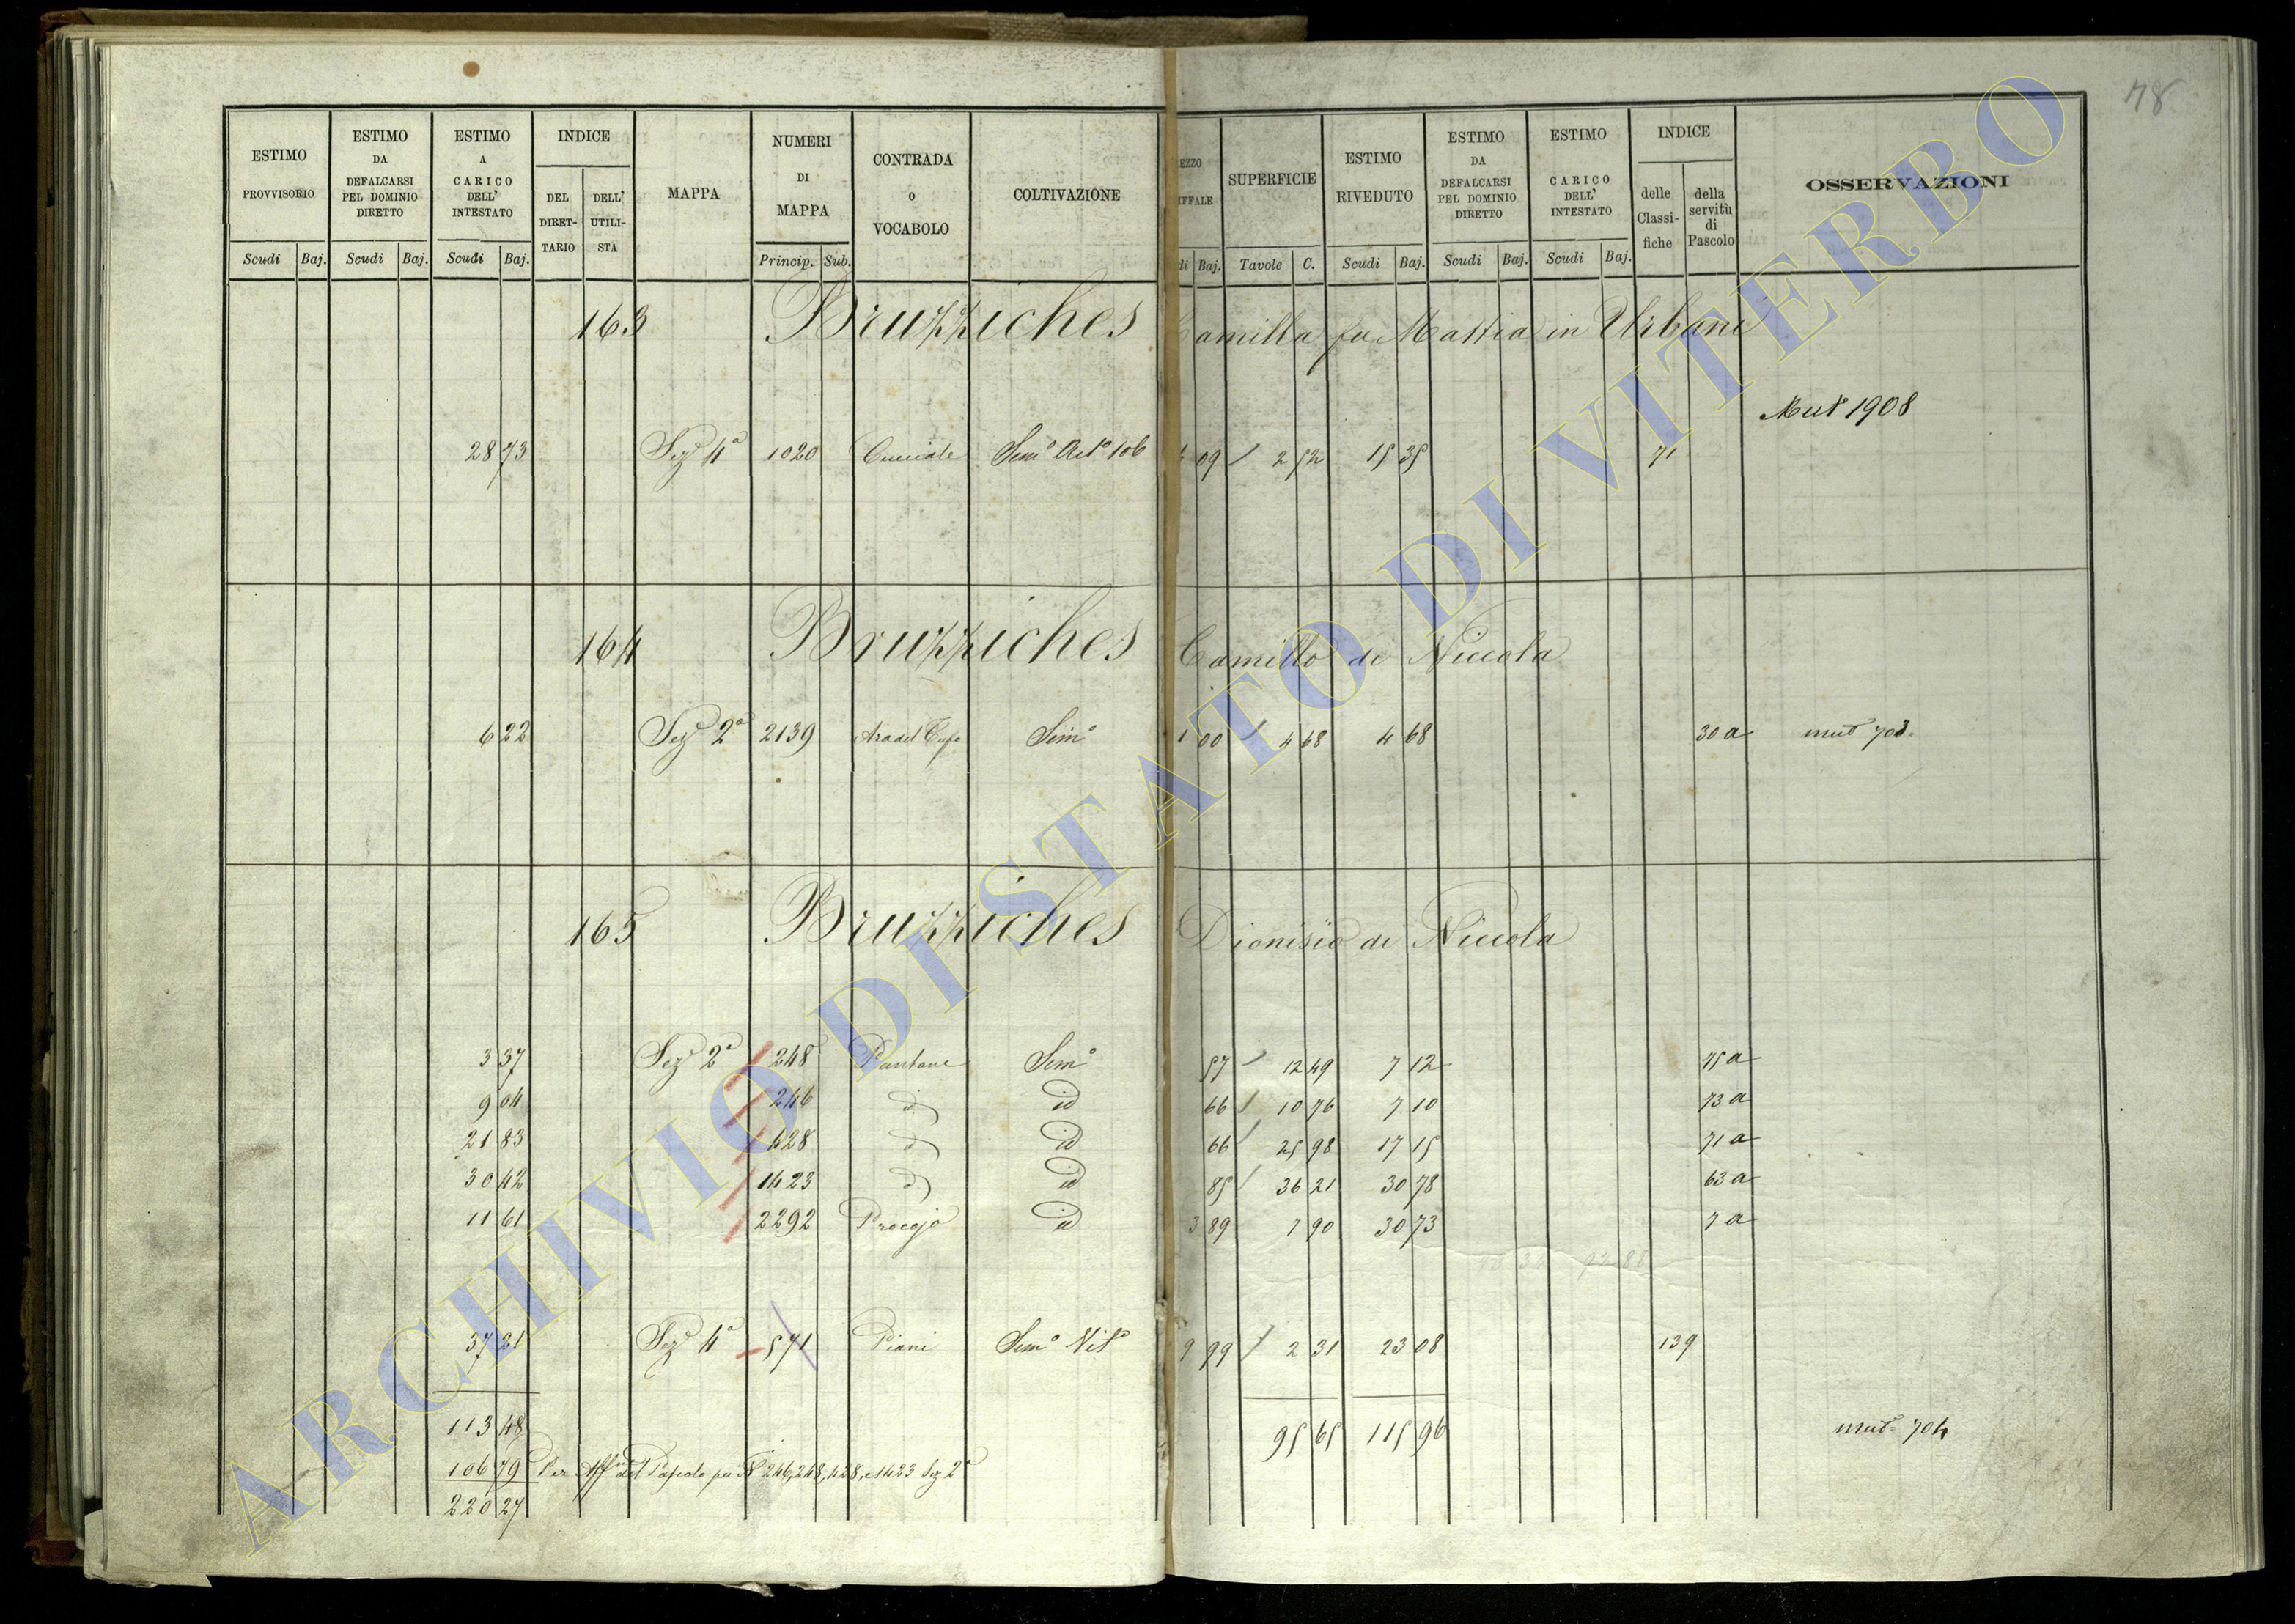 78
ESTIMO PROVVISORIO
Scudi Baj.
ESTIMO DA DEFALCARSI PEL DOMINIO DIRETTO
Scudi Baj.
ESTIMO A CARICO DELL' INTESTATO
Scudi Baj.
INDICE
DEL DIRET-TARIO
DELL' UTILI-STA
MAPPA
NUMERI DI MAPPA
Princip. Sub.
CONTRADA o VOCABOLO
COLTIVAZIONE
EZZO IFFALE
di Baj.
SUPERFICIE
Tavole C.
ESTIMO RIVEDUTO
Scudi Baj.
ESTIMO DA DEFALCARSI PEL DOMINIO DIRETTO
Scudi Baj.
ESTIMO A CARICO DELL' INTESTATO
Scudi Baj.
INDICE
delle Classi-fiche
della servitù di Pascolo
OSSERVAZIONI
163 Bruzziches Camilla fu Mattia in Urbani
Mut 1908
28 73 Sez 4a 1020 Semo 106 09 2 52 15 35 71
164 Bruzziches Camillo di Niccola
6 22 Seza 2a 2139 Ara del Semo 1 00 4 68 4 68 30 a mut 703
165 Bruzziches Dionisio di Niccola
3 37 Seza 2a 248 Pantane Semo 57 12 49 7 12 75 a
9 04 246 id 66 10 76 7 10 73 a
21 83 428 id 66 25 98 17 15 71 a
30 42 1423 id 85 36 21 30 78 63 a
11 61 2292 Procojo id 3 89 7 90 30 73 7 a
37 21 Seza 4a 571 Piani Semo Vito 9 99 2 31 23 08 139
113 48 95 65 115 96 mut 704
106 79 Per Affne del Pascolo pei N 246, 248, 428, e 1423 Sez 2a
220 27
ARCHIVIO DI STATO DI VITERBO